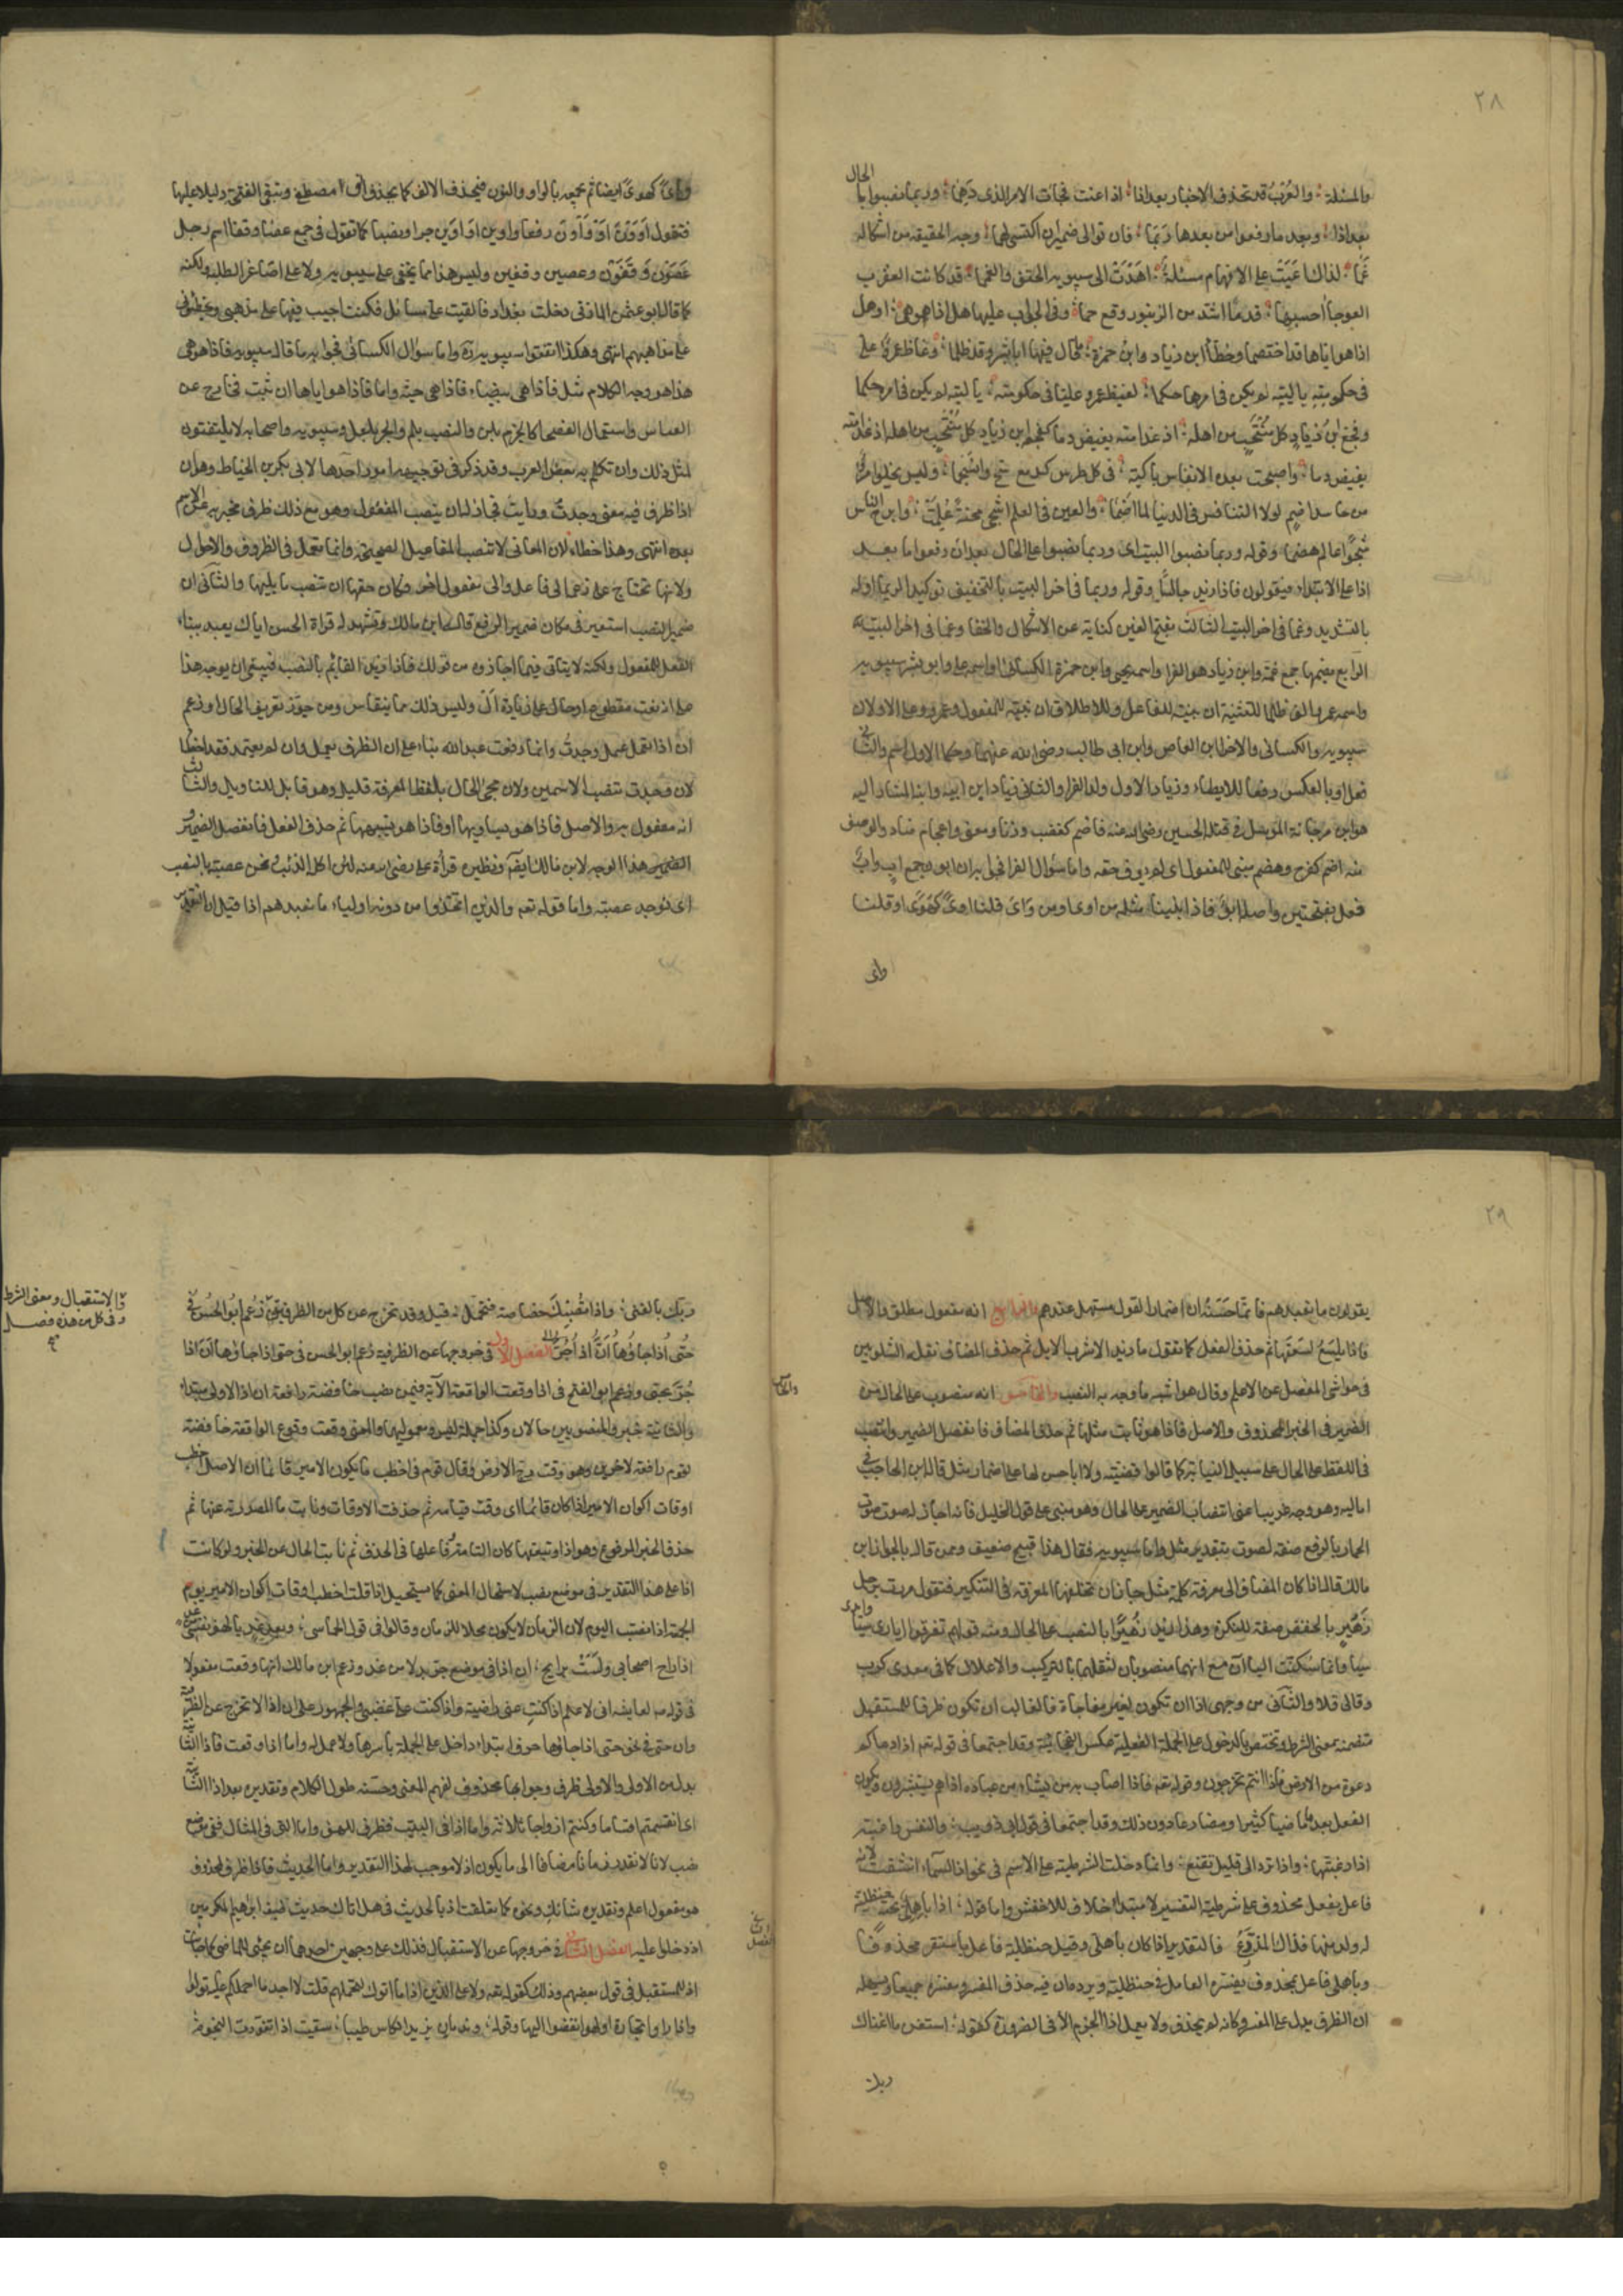 ٢٨
الحال
والمسئلة والعرب قد تحذف الاخبار بعد اذا اذا عنت فجاءة الامر الذى دهما وربما نصبوا با
بعد اذا وبعد ما رفعوا من بعدها ربما فان توالى ضميران اكتسى بهما وجه الحقيقة من اشكاله
غما لذاك اعيت على الافهام مسئلة اهدت الى سيبويه الحتف والغمما قد كانت العقرب
العوجا احسبها قدما اشد من الزنبور وقع حما وفى الجواب عليها هل اذا هو هى او هل
اذا هو اياها قد اختصما وخطأ ابن زياد وابن حمزة ما قال فيها ابا بشر وقد ظلما وغاظ عمرًا على
فى حكومته يا ليته لم يكن فى امرها حكما كغيظ عمرو عليا فى حكومته يا ليته لم يكن فى امره حكما
وفجع ابن زياد كل منتخب من اهله اذ غدا منه يفيض دما كفجع ابن زياد كل منتحب من اهله اذ غدا منه
يفيض دما واصبحت بعده الانفاس باكية فى كل طرس كدمع سح وانسجما وليس يخلو امرؤ
من حاسد اضم لولا التنافس فى الدنيا لما اضما والغبن فى العلم اشجى محنة علمت وابرح الناس
شجوا عالم هضما وقوله وربما نصبوا البيت اى وربما نصبوا على الحال بعد ان رفعوا ما بعد
اذا على الابتداء فيقولون فاذا زيد جالسا وقوله وربما فى اخر البيت بالتخفيف توكيد لربما اوله
بالتشديد وغما فى اخر البيت الثالث بفتح الغين كناية عن الاشكال والخفا وغما فى اخر البيت
الرابع بضمها جمع غمة وابن زياد هو الفرا واسمه يحيى وابن حمزة الكسائى واسمه على وابو بشر سيبويه
واسمه عمرو والف ظلما للتثنية ان بنيته للفاعل وللاطلاق ان بنيته للمفعول وعمرو وعلى الاولان
سيبويه والكسائى والاخران ابن العاص وابن ابى طالب رضى الله عنهما وحكما الاول اسم والثا
فعل او بالعكس دفعا للايطاء وزياد الاول والد الفرا والثانى زياد ابن ابيه وابنه المشار اليه
هو ابن مرجانة المرسل فى قتلة الحسين رضى الله عنه فاضم كغضب وزنا ومعنى واعجام ضاد والوصف
منه اضم كفرح وهضم مبنى للمفعول اى لم يوف حقه واما سؤال الفرا فجوابه ان ابون جمع اب واب
فعل بفتحتين واصله ابو فاذا بنينا مثله من اوى او من واى قلنا اوى كهوى او قلنا
واى
واى كهوى ايضا ثم نجمعه بالواو والنون فتحذف الالف كما تحذف الف مصطفى وتبقى الفتحة دليلا عليها
فتقول اوون او واون رفعا واوين او واين جرا ونصبا كما تقول فى جمع عصا وقفا اسم رجل
عصون وقفون وعصين وقفين وليس هذا مما يخفى على سيبويه ولا على اصاغر الطلبة ولكنه
كما قال ابو عثمن المازنى دخلت بغداد فالقيت على مسائل فكنت اجيب فيها على مذهبى ويخطئونى
على مذاهبهم انتهى وهكذا اتفق لسيبويه ره واما سؤال الكسائى فجوابه ما قاله سيبويه فاذا هو هى
هذا هو وجه الكلام مثل فاذا هى بيضاء فاذا هى حية واما فاذا هو اياها ان ثبت فخارج عن
القياس واستعمال الفصحا كالجزم بلن والنصب بلم والجر بلعل وسيبويه واصحابه لا يلتفتون
لمثل ذلك وان تكلم به بعض العرب وقد ذكر فى توجيهه امور احدها لابى بكر بن الخياط وهو ان
اذا ظرف فيه معنى وجدت ورايت فجاز له ان ينصب المفعول وهو مع ذلك ظرف مخبر به عن الاسم
بعده انتهى وهذا خطاء لان المعانى لا تنصب المفاعيل الصحيحة وانما تعمل فى الظروف والاحوال
ولانها تحتاج على زعمه الى فاعل والى مفعول اخر وكان حقها ان تنصب ما يليها والثانى ان
ضمير النصب استعير فى مكان ضمير الرفع قاله ابن مالك ويشهد له قراة الحسن اياك يعبد ببناء
الفعل للمفعول ولكنه لا يتاتى فيما اجازوه من قولك فاذا زيد القائم بالنصب فينبغى ان يوجه هذا
على انه نعت مقطوع او حال على زيادة ال وليس ذلك مما ينقاس ومن جوز تعريف الحال او زعم
ان اذا تعمل عمل وجدت وانها رفعت عبد الله بناء على ان الظرف يعمل وان لم يعتمد فقد اخطأ
لان وجدت تنصب الاسمين ولان مجئ الحال بلفظ المعرفة قليل وهو قابل للتاويل والثالث
انه مفعول به والاصل فاذا هو يساويها او فاذا هو يشبهها ثم حذف الفعل فانفصل الضمير
الضمير هذا الوجه لابن مالك ايضا ونظيره قراءة على رضى الله عنه لئن اكل الذئب ونحن عصبة بالنصب
اى نوجد عصبة واما قوله تعه والذين اتخذوا من دونه اولياء ما نعبدهم اذا قيل ان التقدير
٢٩
يقولون ما نعبدهم فانما حسنه ان اضمار القول مستسهل عندهم والرابع انه مفعول مطلق والاصل
فاذا يلسع لسعتها ثم حذف الفعل كما تقول ما زيد الا شرب الابل ثم حذف المضاف نقله الشلوبين
فى حواشى المفصل عن الاعلم وقال هو اشبه ما وجه به النصب والخامس انه منصوب على الحال من
الضمير فى الخبر المحذوف والاصل فاذا هو ثابت مثلها ثم حذف المضاف فانفصل الضمير وانتصب
فى اللفظ على الحال على سبيل النيابة كما قالوا قضية ولا ابا حسن لها على اضمار مثل قاله ابن الحاجب فى
اماليه وهو وجه غريب اعنى انتصاب الضمير على الحال وهو مبنى على قول الخليل فانه اجاز له صوت صوت
الحمار بالرفع صفة لصوت بتقدير مثل واما سيبويه فقال هذا قبيح ضعيف وممن قال بالجواز ابن
مالك قال اذا كان المضاف الى معرفة كلمة مثل جاز ان تخلفها المعرفة فى التنكير فتقول مررت برجل
زهير بالخفض صفة للنكرة وهذا زيد زهيرا بالنصب على الحال ومنه قولهم تفرقوا ايادى سبا وايدى
سبا وانما سكنت الياآن مع انهما منصوبان لثقلهما بالتركيب والاعلال كما فى معدى كرب
وقالى قلا والثانى من وجهى اذا ان تكون لغير مفاجاة فالغالب ان تكون ظرفا للمستقبل
متضمنة معنى الشرط وتختص بالدخول على الجملة الفعلية عكس الفجائية وقد اجتمعا فى قوله تعه اذا دعاكم
دعوة من الارض اذا انتم تخرجون وقوله تعه فاذا اصاب به من يشاء من عباده اذا هم يستبشرون ويكون
الفعل بعدها ماضيا كثيرا ومضارعا دون ذلك وقد اجتمعا فى قول ابى ذويب والنفس راغبة
اذا رغبتها واذا ترد الى قليل تقنع وانما دخلت الشرطية على الاسم فى نحو اذا السماء انشقت لانه
فاعل بفعل محذوف على شريطة التفسير لا مبتدا خلافا للاخفش واما قوله اذا باهلى تحته حنظلية
له ولد منها فذاك المذرع فالتقدير اذا كان باهلى وقيل حنظلية فاعل باستقر محذوفا
وباهلى فاعل بمحذوف يفسره العامل فى حنظلية ويرده ان فيه حذف المفسر ومفسره جميعا ويسهله
ان الظرف يدل على المفسر فكانه لم يحذف ولا يعمل اذا الجزم الا فى الضرورة كقوله استغن ما اغناك
ربك
والخامس
ربك بالغنى واذا تصبك خصاصة فتجمل قيل وقد تخرج عن كل من الظرفية زعم ابو الحسن فى
والاستقبال ومعنى الشرط
وفى كل من هذه فصل
صح
حتى اذا جاؤها ان اذا جر الفصل الاول فى خروجها عن الظرفية زعم ابو الحسن فى حتى اذا جاؤها ان اذا
جر بحتى وزعم ابو الفتح فى اذا وقعت الواقعة الآية فيمن نصب خافضة رافعة ان اذا الاولى مبتداء
والثانية خبر والمنصوبين حالان وكذا جملة ليس ومعموليها والمعنى وقت وقوع الواقعة خافضة
لقوم رافعة لاخرين وهو وقت رج الارض وقال قوم فى اخطب ما يكون الامير قائما ان الاصل اخطب
اوقات اكوان الامير اذا كان قائما اى وقت قيامه ثم حذفت الاوقات ونابت ما المصدرية عنها ثم
حذف الخبر المرفوع وهو اذا وتبعتها كان التامة وفاعلها فى الحذف ثم نابت الحال عن الخبر ولو كانت
اذا على هذا التقدير فى موضع نصب لاستحال المعنى كما يستحيل اذا قلت اخطب اوقات اكوان الامير يوم
الجمعة اذا نصبت اليوم لان الزمان لا يكون محلا للزمان وقالوا فى قول الحماسى وبعد غد يا لهف نفسى
اذا راح اصحابى ولست برايح ان اذا فى موضع جر بدلا من غد وزعم ابن مالك انها وقعت مفعولا
فى قوله لعايشة انى لاعلم اذا كنت عنى راضية واذا كنت على غضبى والجمهور على ان اذا لا تخرج عن الظرفية
وان حتى فى نحو حتى اذا جاؤها حرف ابتداء داخل على الجملة باسرها ولا عمل له واما اذا وقعت فاذا الثانية
بدل من الاولى والاولى ظرف وجوابها محذوف لفهم المعنى وحسنه طول الكلام وتقديره بعد اذا الثانية
اى انقسمتم اقساما وكنتم ازواجا ثلاثة واما اذا فى البيت فظرف للهف واما التى فى المثال ففى موضع
نصب لانا لا نقدر زمانا مضافا الى ما يكون اذ لا موجب لهذا التقدير واما الحديث فاذا ظرف لمحذوف
هو مفعول اعلم وتقديره شانك ونحوه كما تعلقت اذ بالحديث فى هل اتاك حديث ضيف ابراهيم المكرمين
اذ دخلوا عليه الفصل الثانى فى خروجها عن الاستقبال وذلك على وجهين احدهما ان تجئ للماضى كما جاءت
اذ للمستقبل فى قول بعضهم وذلك كقوله تعه ولا على الذين اذا ما اتوك لتحملهم قلت لا اجد ما احملكم عليه تولوا
واذا راوا تجارة او لهوا انفضوا اليها وقوله وندمان يزيد الكاس طيبا سقيت اذا تغورت النجوم